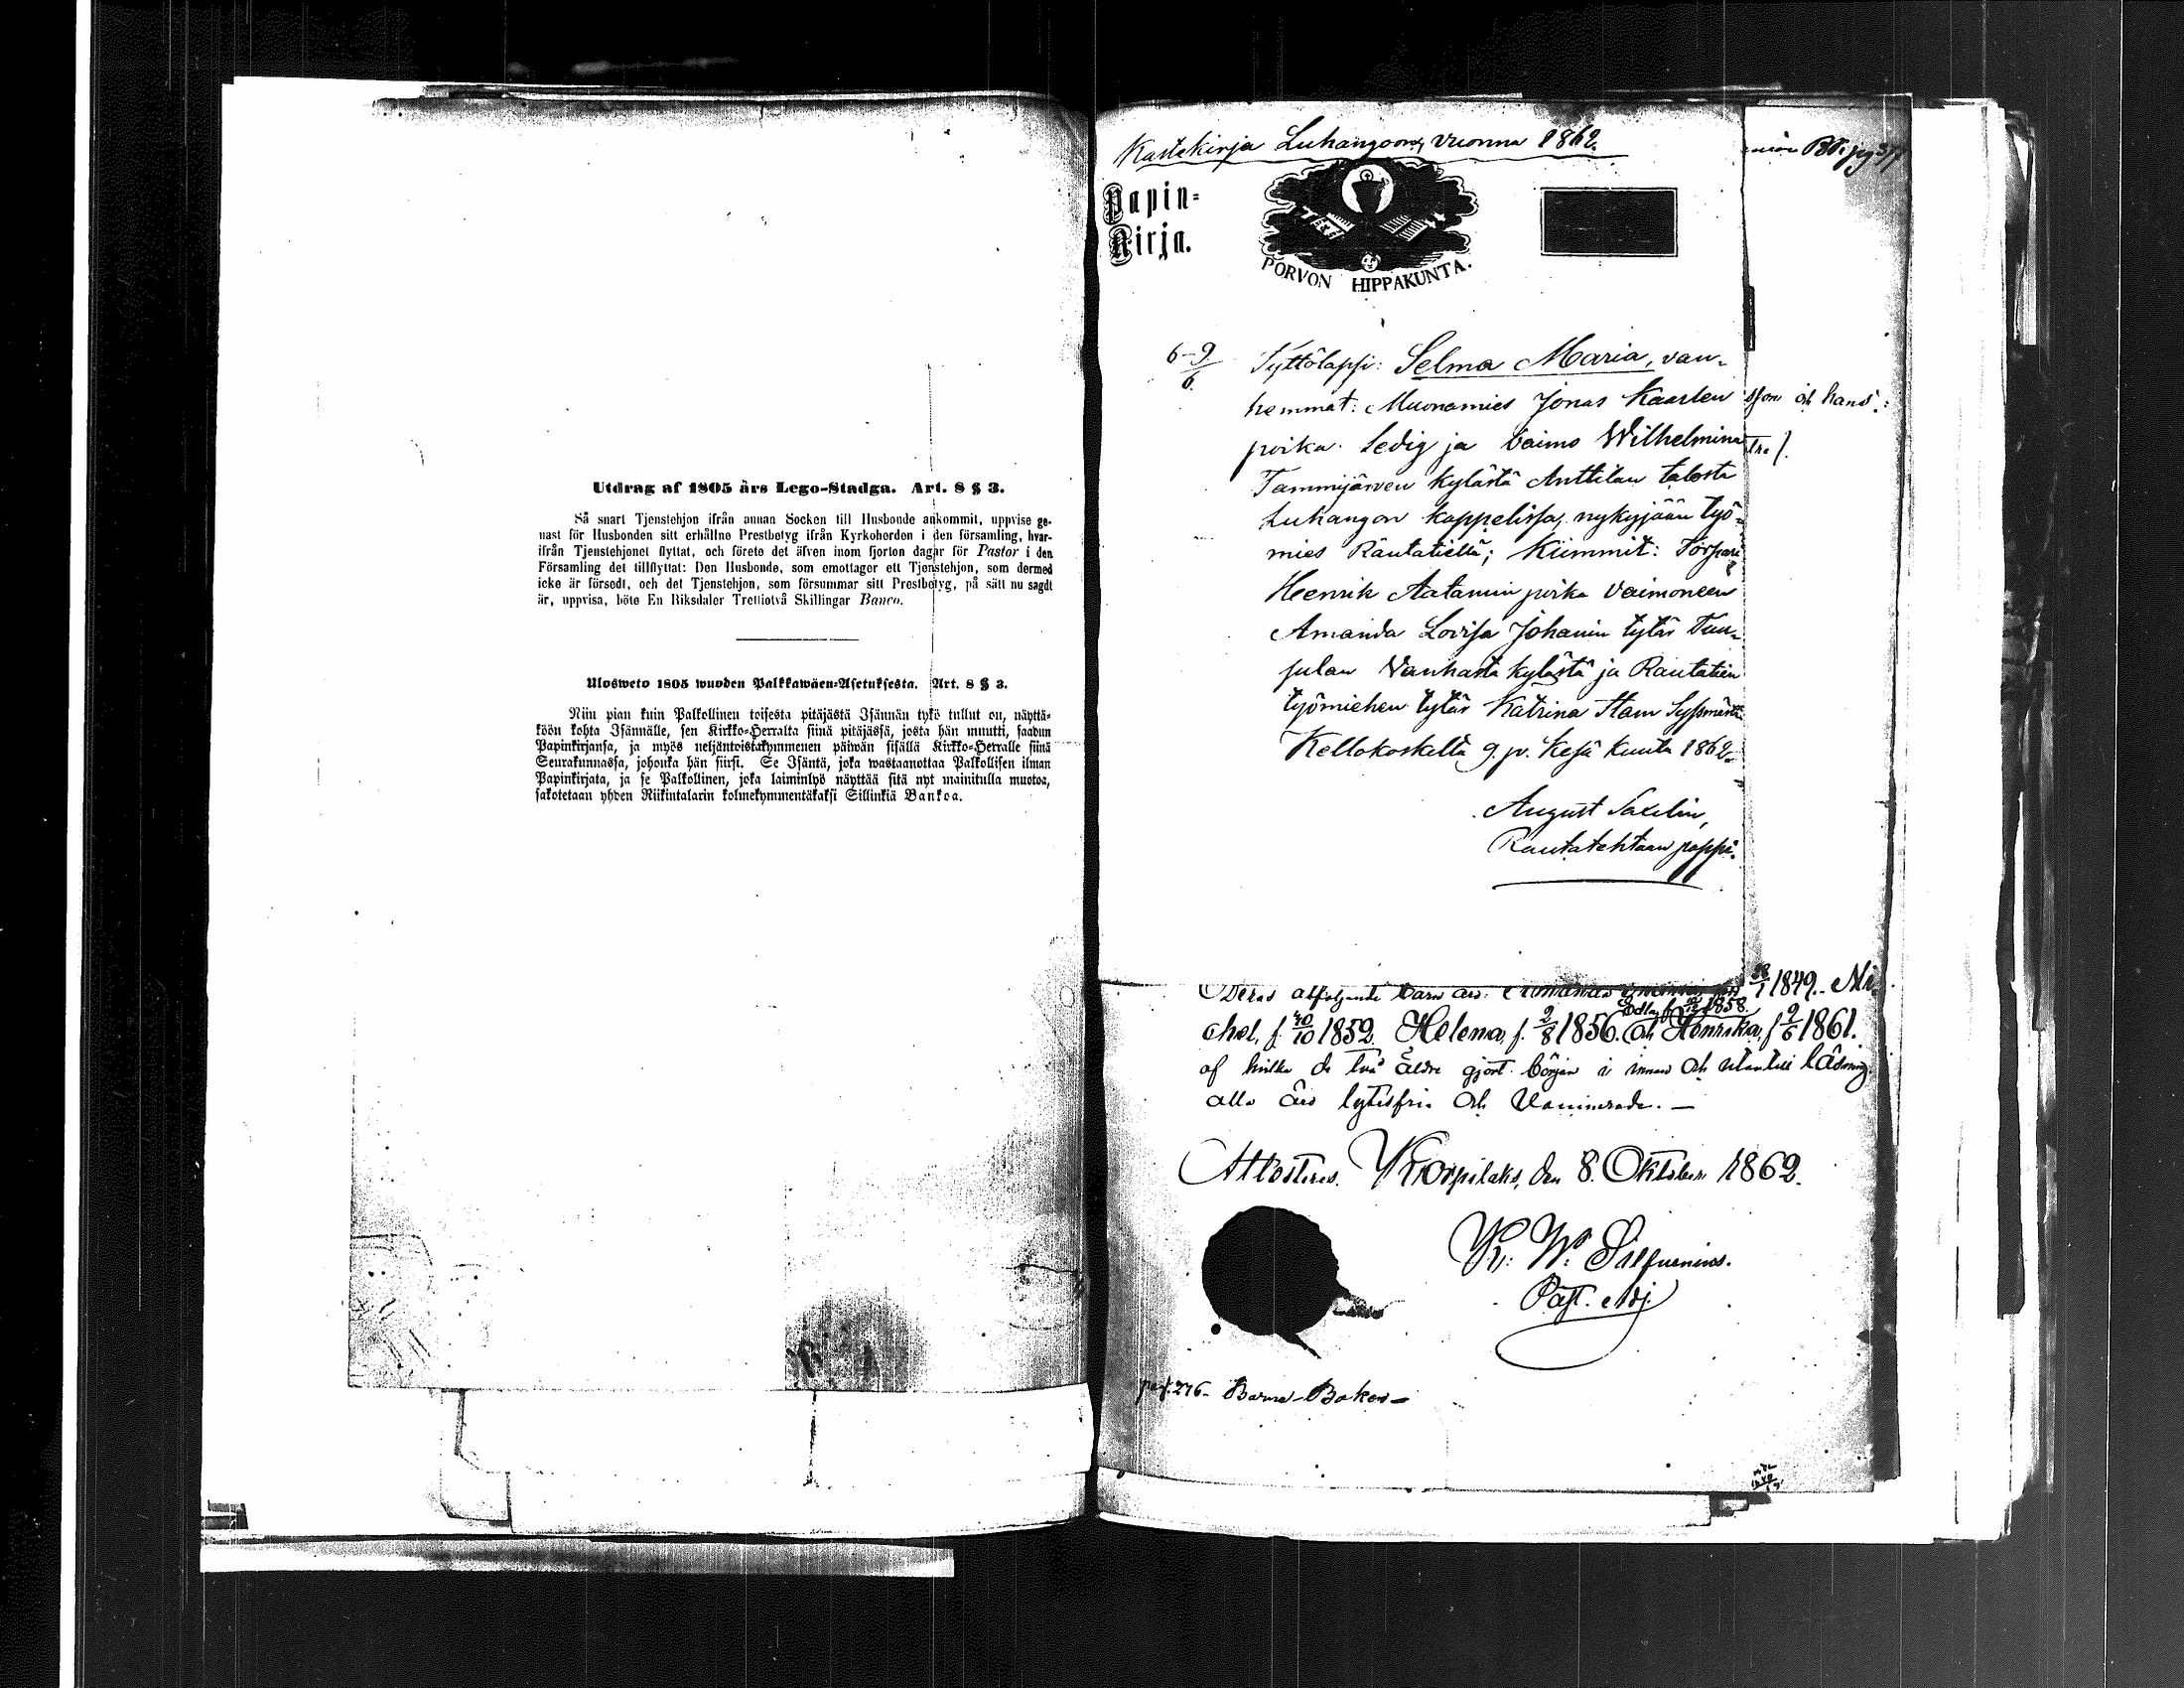 Utdrag af 1805 års Lego-Stadga. Art. 8 § 3.
Så snart Tjenstehjon ifrån annan Socken till Husbonde ankommit, uppvise ge-
nast för Husbonden sitt erhållne Prestbetyg ifrån Kyrkoherden i den församling, hvar-
ifrån Tjenstehjonet flyttat, och förete det äfven inom fjorton dagar för Pastor i den
Församling det tillflyttat: Den Husbonde, som emottager ett Tjenstehjon, som dermed
icke är försedt, och det Tjenstehjon, som försummar sitt Prestbetyg, på sätt nu sagdt
är, uppvisa, böte En Riksdaler Trettiotvå Skillingar Banco.
Ulosweto 1805 wuoden Palkkawäen-Asetuksesta. Art. 8 § 3.
Niin pian kuin Palkollinen toisesta pitäjästä Isännän tykö tullut on, näyttä-
köön kohta Isännälle, sen Kirkko-Herralta siinä pitäjässä, josta hän muutti, saadun
Papinkirjansa, ja myös neljäntoistakymmenen päiwän sisällä Kirkko-Herralle siinä
Seurakunnassa, johonka hän siirsi. Se Isäntä, joka wastaanottaa Palkollisen ilman
Papinkirjata, ja se Palkollinen, joka laiminlyö näyttää sitä nyt mainitulla muotoa,
sakotetaan yhden Riikintalarin kolmekymmentäkaksi Sillinkiä Bankoa.
Kastekirja Luhangoon, vuonna 1862.
Papin-
Kirja.
PORVON HIPPAKUNTA.
6-9/6 Tyttölapsi: Selma Maria, van-
hemmat: Muonamies Jonas Kaarlen
poika Ledig ja vaimo Wilhelmina
Tammijärven kylästä Anttilan talosta
Luhangon kappelissa, nykyjään työ-
mies Rautatiellä; Kummit: Torpari
Henrik Aatamin poika vaimoneen
Amanda Lovisa Johanin tytär Tuu-
sulan Vanhasta kylästä ja Rautatien
työmiehen tytär Katrina Stam Sysmästä
Kellokoskella 9. p. Kesä kuuta 1862.
August
Rautatehtaan pappi.
och hans
Deras alfolgande barn äro: 1849. Mi-
Edla, f. 1858.
chel, f. 1852. Helena, f. 2/8 1856. och Henrika, f. 2/6 1861.
af hvilka de två äldre gjort början i innan och utantill läsning,
alla äro lytesfria och Vaccinerade. —
Attesteras. Korpilaks, den 8. Oktober 1862.
Past. Adj.
pag. 276. Barna-Boken